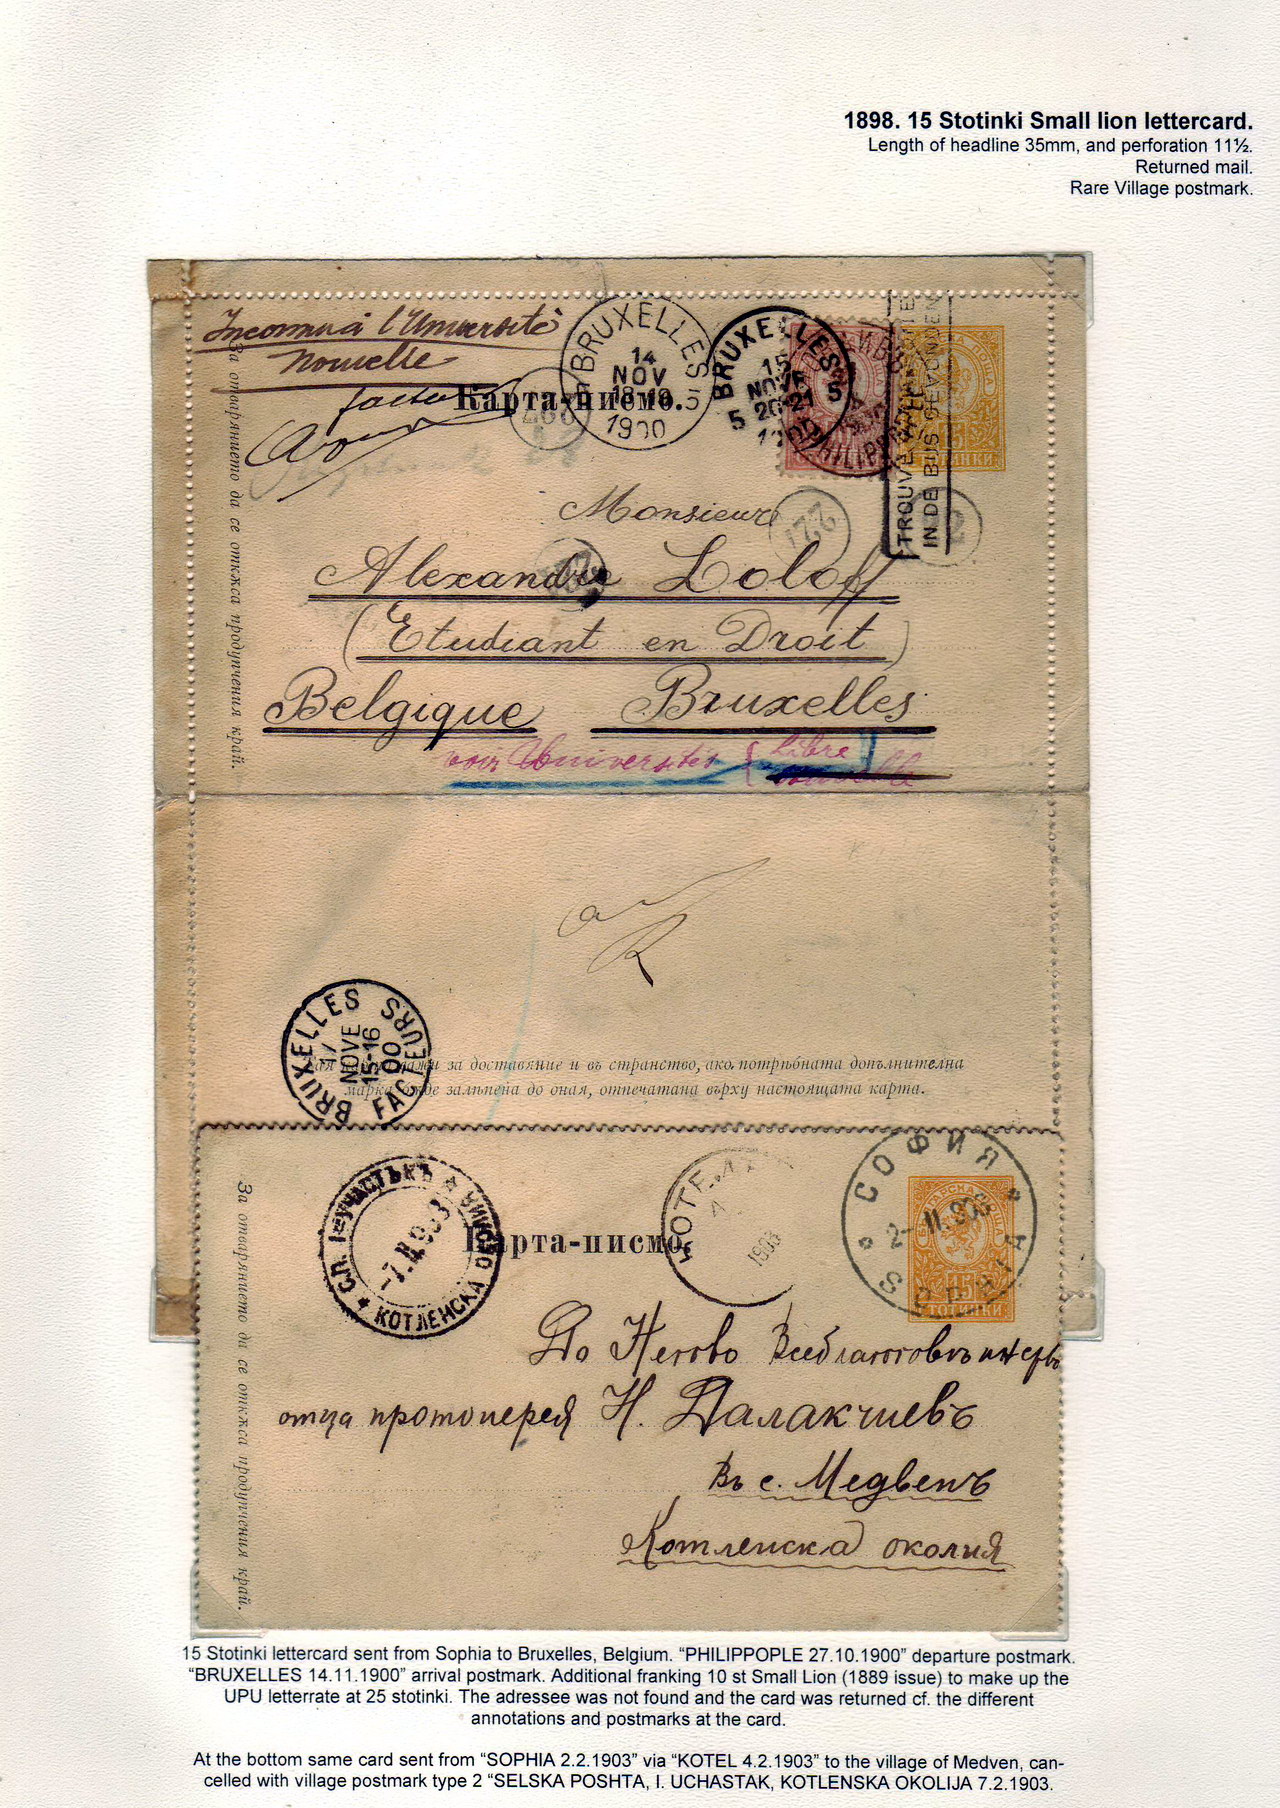 1898. 15 Stotinki Small lion lettercard.
Length of headline 35mm, and perforation 11½.
Returned mail.
Rare Village postmark.
Inconnu à l'Université
Nouvelle
facteur
Карта-писмо.
BRUXELLES 5
14
NOV
18-19
1900
BRUXELLES 5
15
NOVE
20-21
5
PHILIPPOPLE
ТОТИНКИ
TROUVÉ
IN DE BUS GEVONDEN
За отварянието да се откѫса продупчения край.
Monsieur
227
Alexandre Loloff
(Etudiant en Droit)
Belgique Bruxelles
voir Universités { libre
nouvelle
BRUXELLES FACTEURS
17
NOVE
15-16
00
за доставяние и въ странство, ако потрѣбната допълнителна
марка бѫде залѣпена до оная, отпечатана върху настоящата карта.
СЛ. I УЧАСТЪКЪ КОТЛЕНСКА ОКОЛИЯ
-7.II.903
КОТЕЛЪ
4
1903
СОФИЯ
2-II.903
SOPHIA
15
ТОТИНКИ
Карта-писмо.
За отварянието да се откѫса продупчения край.
До Негово Всеблаговъ
отца протоиерея Н. Далакчиевъ
Въ с. Медвенъ
Котленска околия
15 Stotinki lettercard sent from Sophia to Bruxelles, Belgium. “PHILIPPOPLE 27.10.1900” departure postmark.
“BRUXELLES 14.11.1900” arrival postmark. Additional franking 10 st Small Lion (1889 issue) to make up the
UPU letterrate at 25 stotinki. The adressee was not found and the card was returned cf. the different
annotations and postmarks at the card.
At the bottom same card sent from “SOPHIA 2.2.1903” via “KOTEL 4.2.1903” to the village of Medven, can-
celled with village postmark type 2 “SELSKA POSHTA, I. UCHASTAK, KOTLENSKA OKOLIJA 7.2.1903.